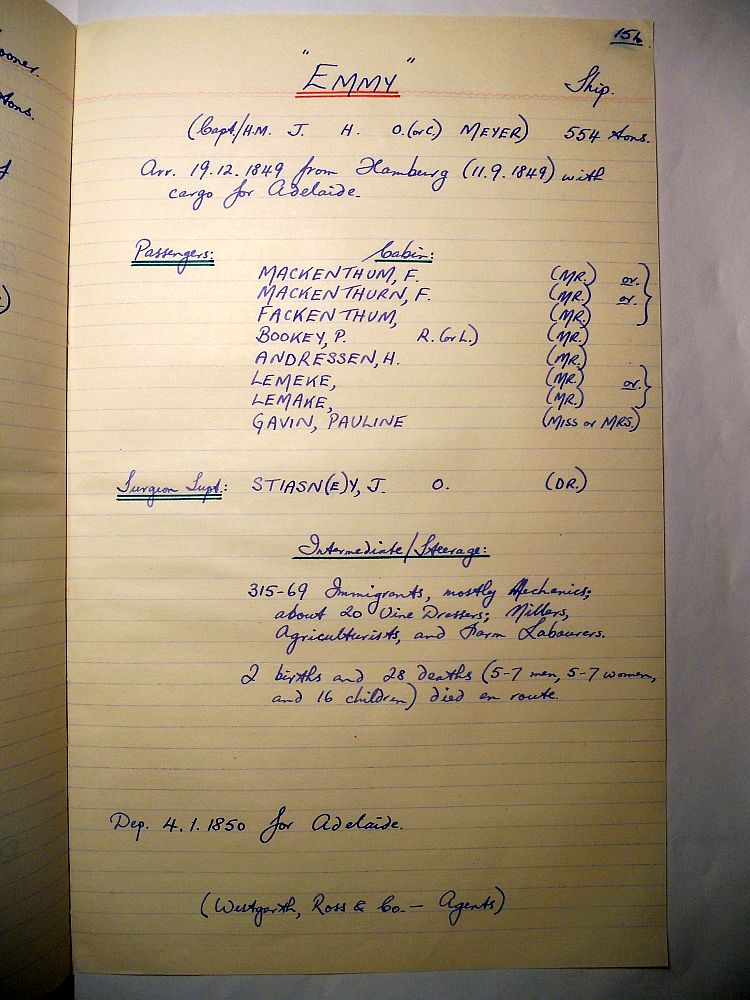 156.
"EMMY" Ship.
(Capt./H.M. J. H. O.(or C) MEYER) 554 tons.
Arr. 19.12.1849 from Hamburg (11.9.1849) with
cargo for Adelaide.
Passengers: Cabin:
MACKENTHUM, F. (MR.) or.
MACKENTHURN, F. (MR.) or.
FACKENTHUM, (MR.)
BOOKEY, P. R. (or L.) (MR.)
ANDRESSEN, H. (MR.)
LEMEKE, (MR.) or.
LEMAKE, (MR.)
GAVIN, PAULINE (MISS or MRS.)
Surgeon Supt.: STIASN(E)Y, J. O. (DR.)
Intermediate/Steerage:
315-69 Immigrants, mostly Mechanics;
about 20 Vine Dressers; Millers,
Agriculturists, and Farm Labourers.
2 births and 28 deaths (5-7 men, 5-7 women,
and 16 children) died en route.
Dep. 4.1.1850 for Adelaide.
(Westgarth, Ross & Co. — Agents)
tons.